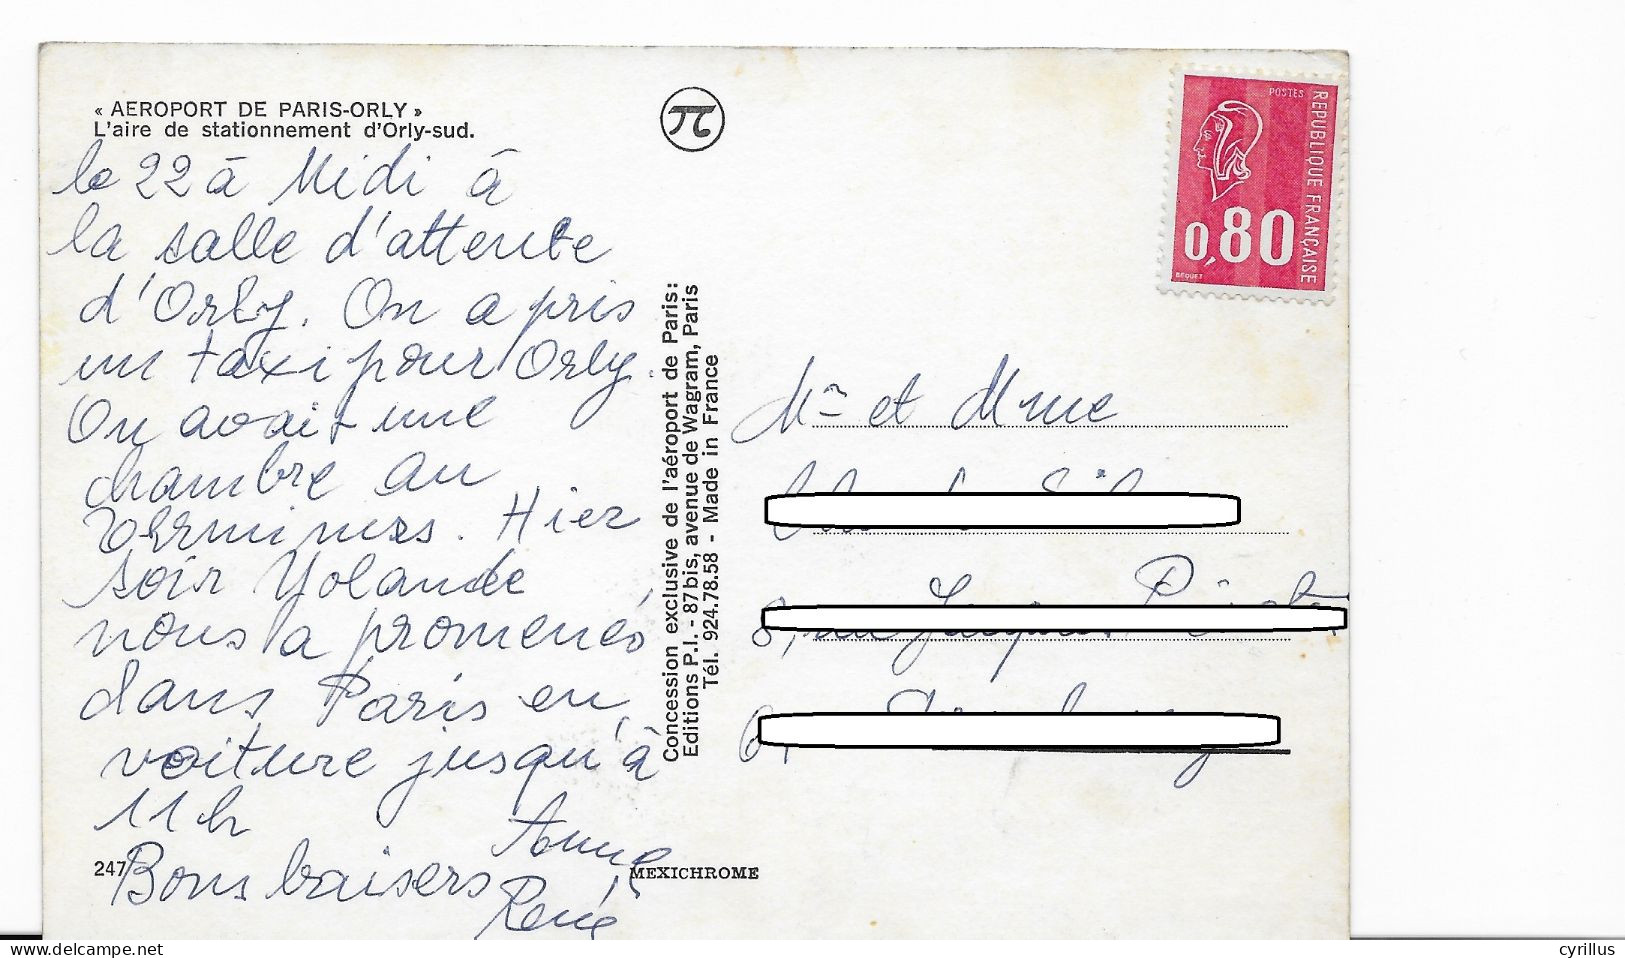 « AEROPORT DE PARIS-ORLY »
L'aire de stationnement d'Orly-sud.
le 22 à Midi à
la salle d'attente
d'Orly. On a pris
un taxi pour Orly.
On avait une
chambre au
Terminus. Hier
soir Yolande
nous a promenés
dans Paris en
voiture jusqu'à
11h
Bons baisers
Anne
René
247
MEXICHROME
Concession exclusive de l'aéroport de Paris:
Editions P.I. - 87 bis, avenue de Wagram, Paris
Tél. 924.78.58 - Made in France
POSTES
REPUBLIQUE FRANÇAISE
0,80
BEQUET
Mr et Mme
8, rue
www.delcampe.net
cyrillus